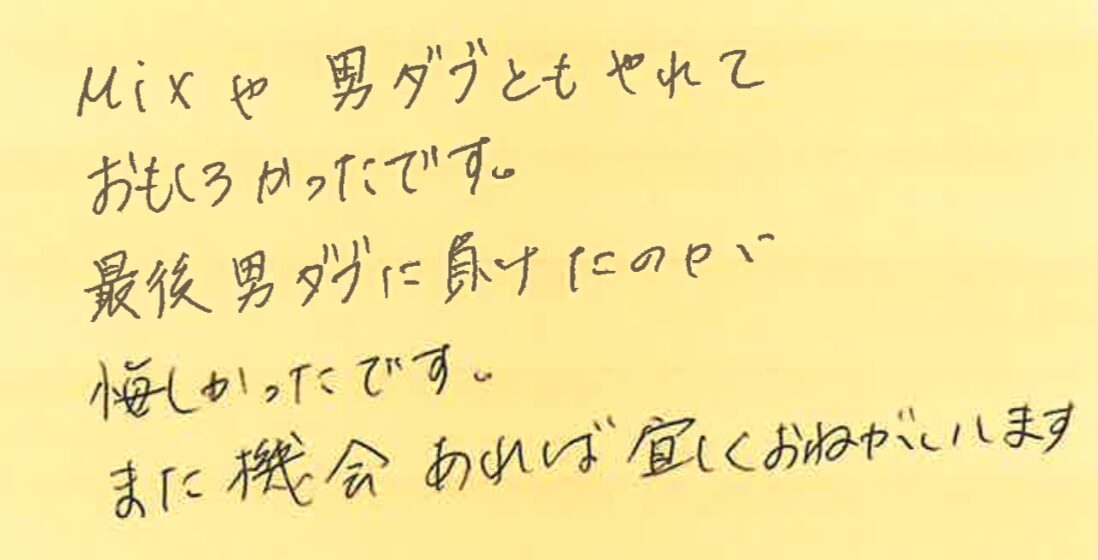 Mixや男ダブともやれて
おもしろかったです。
最後男ダブに負けたのが
悔しかったです。
また機会あれば宜しくおねがいします